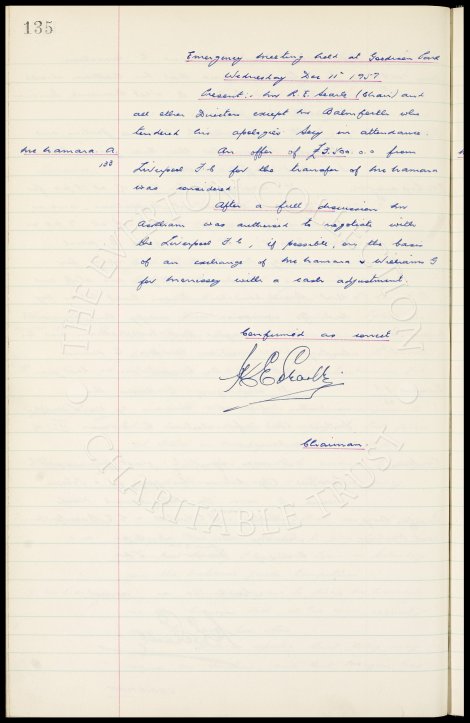 135
Emergency meeting held at Goodison Park
Wednesday Dec 11th 1957
Present :- Mr R. E. Searle (Chair) and
all other Directors except Mr Balmforth who
tendered his apologies Secy in attendance.
McNamara A. An offer of £3.500.0.0 from
133 Liverpool F.C for the transfer of McNamara
was considered
After a full discussion Mr
was authorised to negotiate with
the Liverpool F.C, if possible, on the basis
of an exchange of McNamara & Williams G
for Morrissey with a cash adjustment.
Confirmed as correct
Chairman.
THE EVERTON COLLECTION
CHARITABLE TRUST